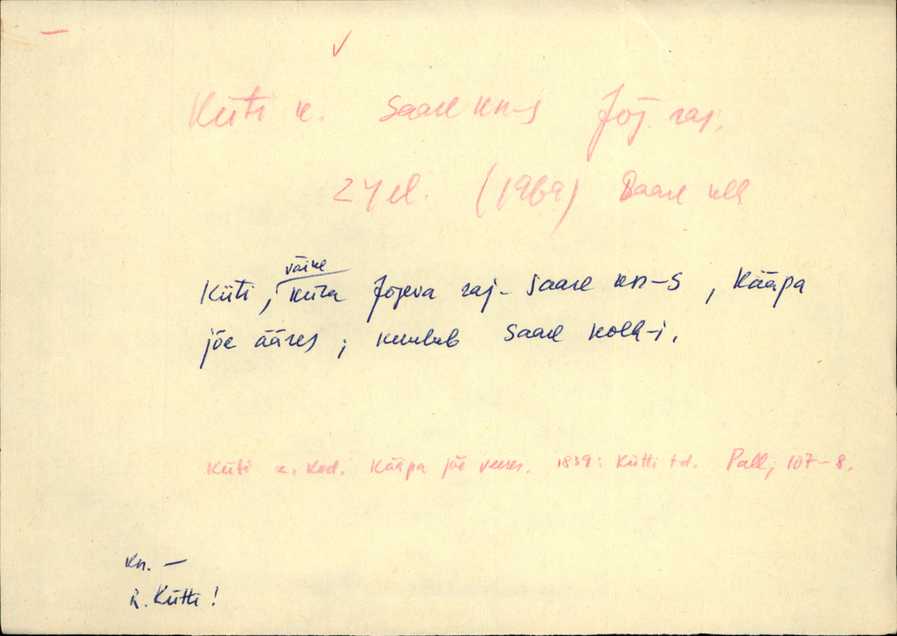 Küti k. Saare kn-s Jõg. raj.
24 el. (1969) Saare kolh
Küti, väike küla Jõgeva raj- Saare kn-s, Kääpa
jõe ääres; kuulub Saare kolh-i.
Küti k. Kod. Kääpa jõe veeres. 1839: Kütti td. Pall, 107-8.
kn. —
R. Kütti!